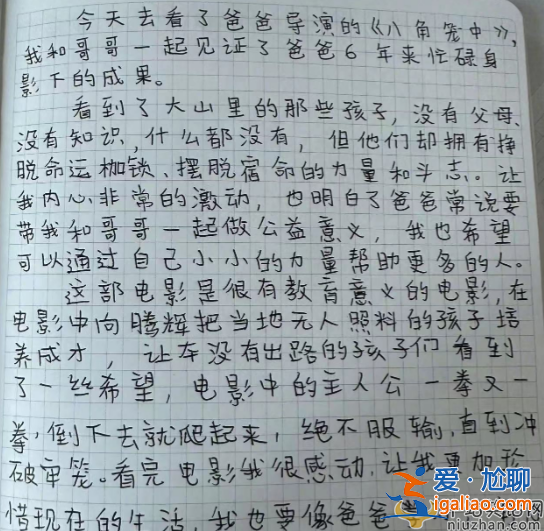 今天去看了爸爸导演的《八角笼中》,
我和哥哥一起见证了爸爸6年来忙碌身
影下的成果。
看到了大山里的那些孩子,没有父母、
没有知识,什么都没有,但他们却拥有挣
脱命运枷锁、摆脱宿命的力量和斗志。让
我内心非常的激动,也明白了爸爸常说要
带我和哥哥一起做公益意义,我也希望
可以通过自己小小的力量帮助更多的人。
这部电影是很有教育意义的电影,在
电影中向腾辉把当地无人照料的孩子培
养成才,让本没有出路的孩子们看到
了一丝希望,电影中的主人公一拳又一
拳,倒下去就爬起来,绝不服输,直到冲
破牢笼。看完电影我很感动,让我更加珍
惜现在的生活,我也要像爸爸
爱·尴聊
igaliao.com